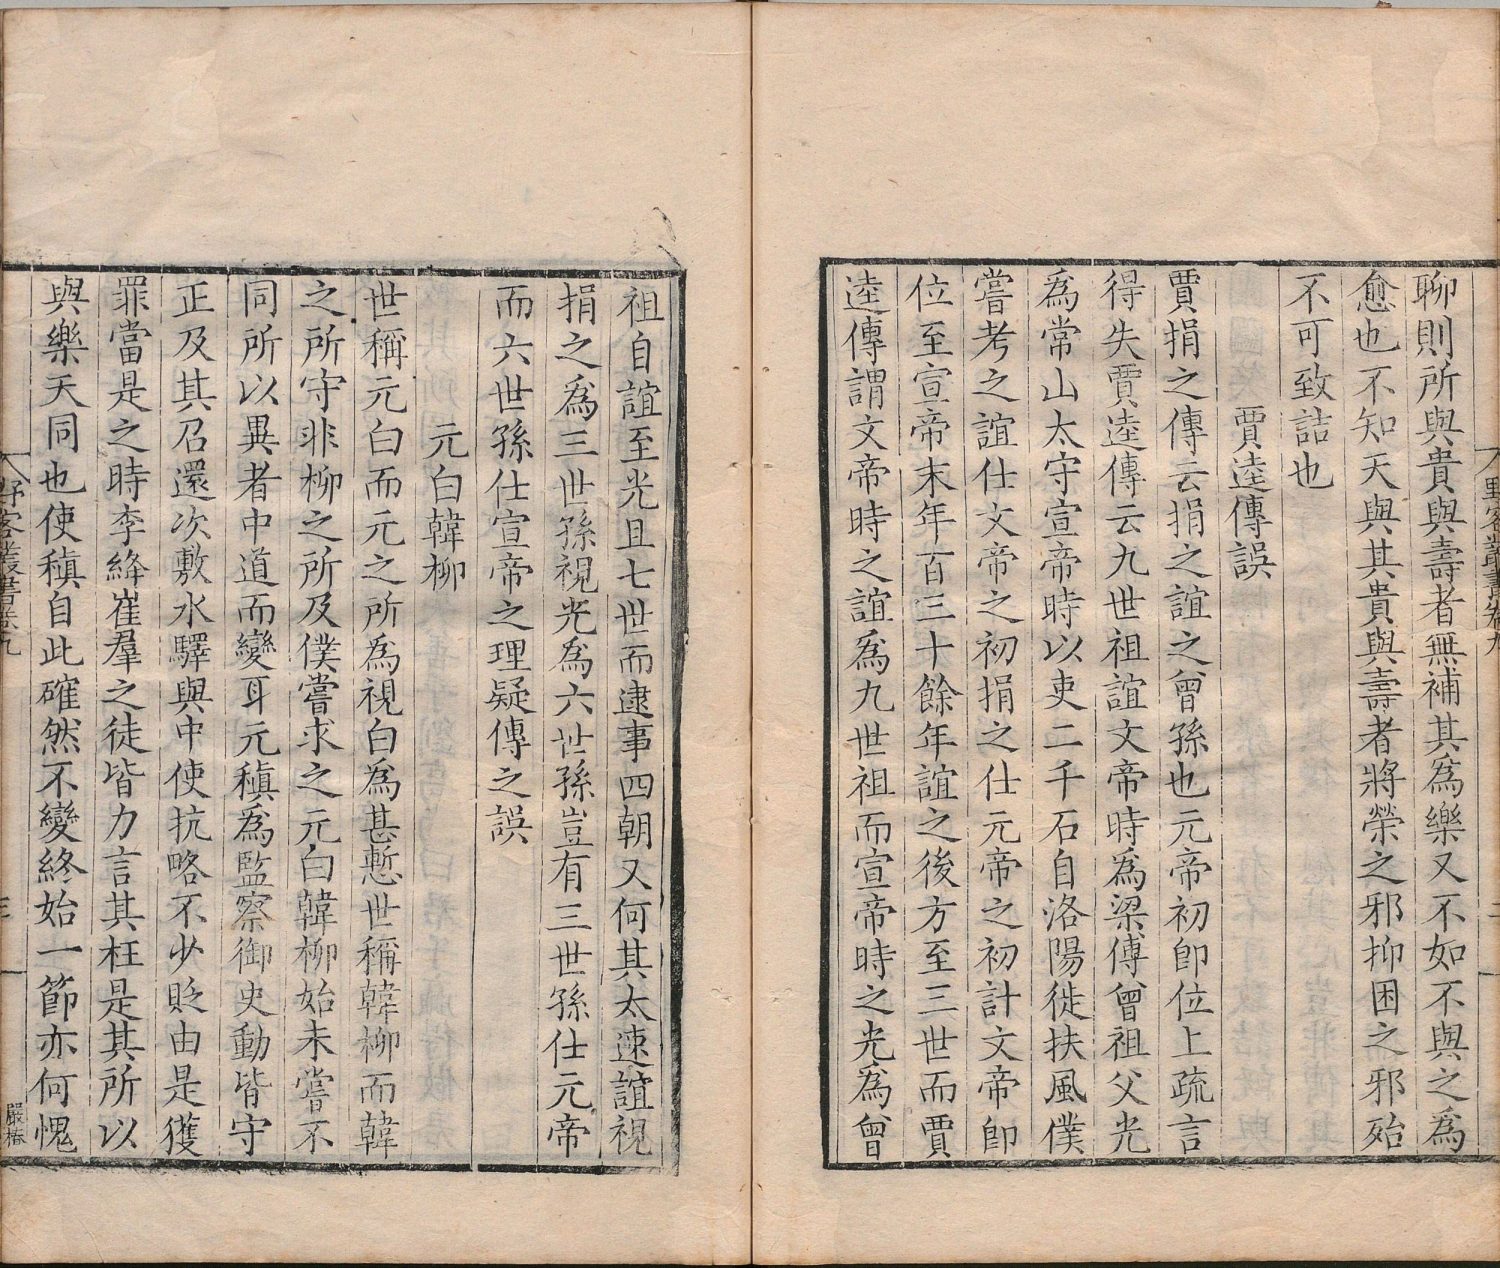 聊則所與貴與壽者無補其爲樂又不如不與之爲
愈也不知天與其貴與壽者將榮之邪抑困之邪殆
不可致詰也
賈逵傳誤
賈捐之傳云捐之誼之曾孫也元帝初卽位上疏言
得失賈逵傳云九世祖誼文帝時爲梁傅曾祖父光
爲常山太守宣帝時以吏二千石自洛陽徙扶風僕
嘗考之誼仕文帝之初捐之仕元帝之初計文帝卽
位至宣帝末年百三十餘年誼之後方至三世而賈
逵傳謂文帝時之誼爲九世祖而宣帝時之光爲曾
祖自誼至光且七世而逮事四朝又何其太速誼視
捐之爲三世孫視光爲六世孫豈有三世孫仕元帝
而六世孫仕宣帝之理疑傳之誤
元白韓柳
世稱元白而元之所爲視白爲甚慙世稱韓柳而韓
之所守非柳之所及僕嘗求之元白韓柳始未嘗不
同所以異者中道而變耳元稹爲監察御史動皆守
正及其召還次敷水驛與中使抗略不少貶由是獲
罪當是之時李絳崔羣之徒皆力言其枉是其所以
與樂天同也使稹自此確然不變終始一節亦何愧
野客叢書卷九
三
嚴椿